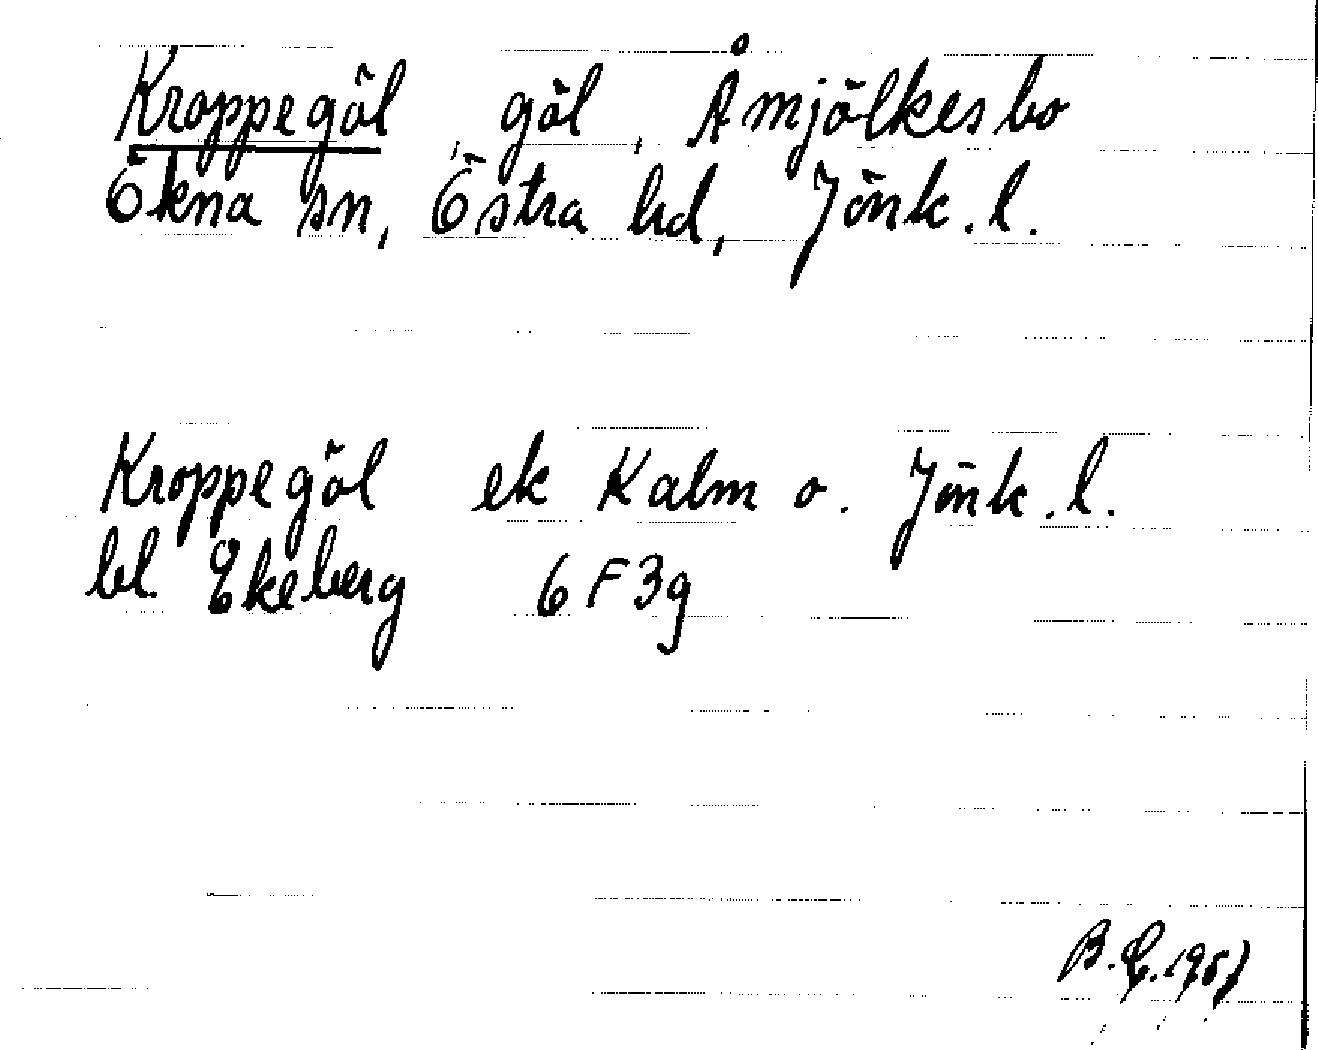 Kroppegöl, göl, Åmjölkesbo
Ökna sn, Östra hd, Jönk. l.
Kroppegöl ek Kalm o. Jönk. l.
bl. Ekeberg 6F3g
B.